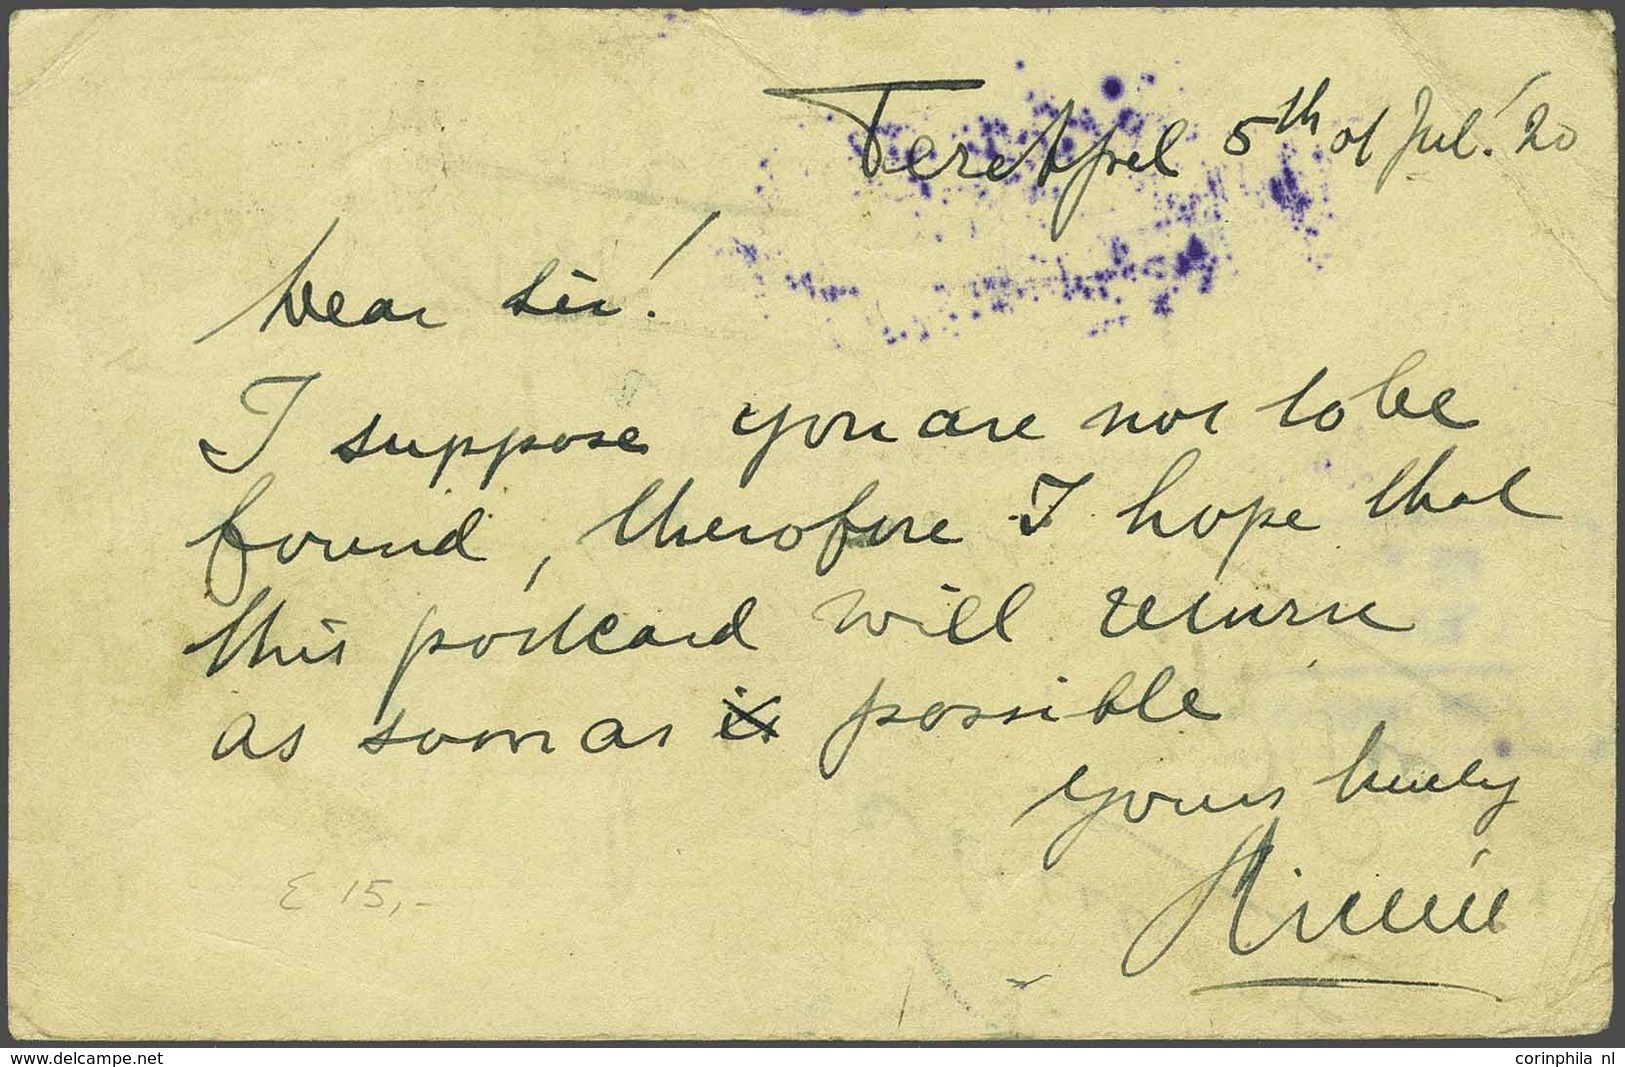 5th of Jul. '20
Dear Sir!
I suppose you are not to be
found, therefore I hope that
this postcard will return
as soon as possible
Yours truly
E 15,-
corinphila nl